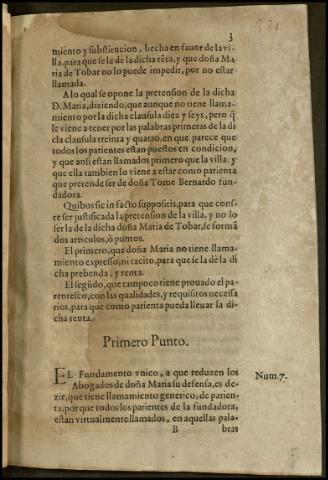 3
331
miento y substitucion, hecha en fauor de la vi-
lla, para que se le de la dicha rẽta, y que doña Ma
ria de Tobar no lo puede impedir, por no estar
llamada.
A lo qual se opone la pretension de la dicha
D. Maria, diziendo, que aunque no tiene llama-
miento por la dicha clausula diez y seys, pero q̃
le viene a tener por las palabras primeras de la di
cha clausula treinta y quatro, en que parece que
todos los parientes estan puestos en condicion,
y que ansi estan llamados primero que la villa: y
que ella tambien lo viene a estar como parienta
que pretende ser de doña Tome Bernardo fun-
dadora.
Quibus sic in facto suppositis, para que cons-
te ser justificada la pretension de la villa, y no lo
ser la de la dicha doña Maria de Tobar, se formã
dos articulos, ò puntos.
El primero, que doña Maria no tiene llama-
miento expresso, ni tacito, para que se la dè la di
cha prebenda, y renta.
El segũdo, que tampoco tiene prouado el pa-
rentesco, con las qualidades, y requisitos necessa
rios, para que como parienta pueda lleuar la di-
cha renta.
Primero Punto.
EL Fundamento vnico, a que reduzen los
Abogados de doña Maria su defensa, es de-
zir, que tiene llamamiento generico, de parien-
ta, porque todos los parientes de la fundadora,
estan virtualmente llamados, en aquellas pala-
Num. 7.
B bras